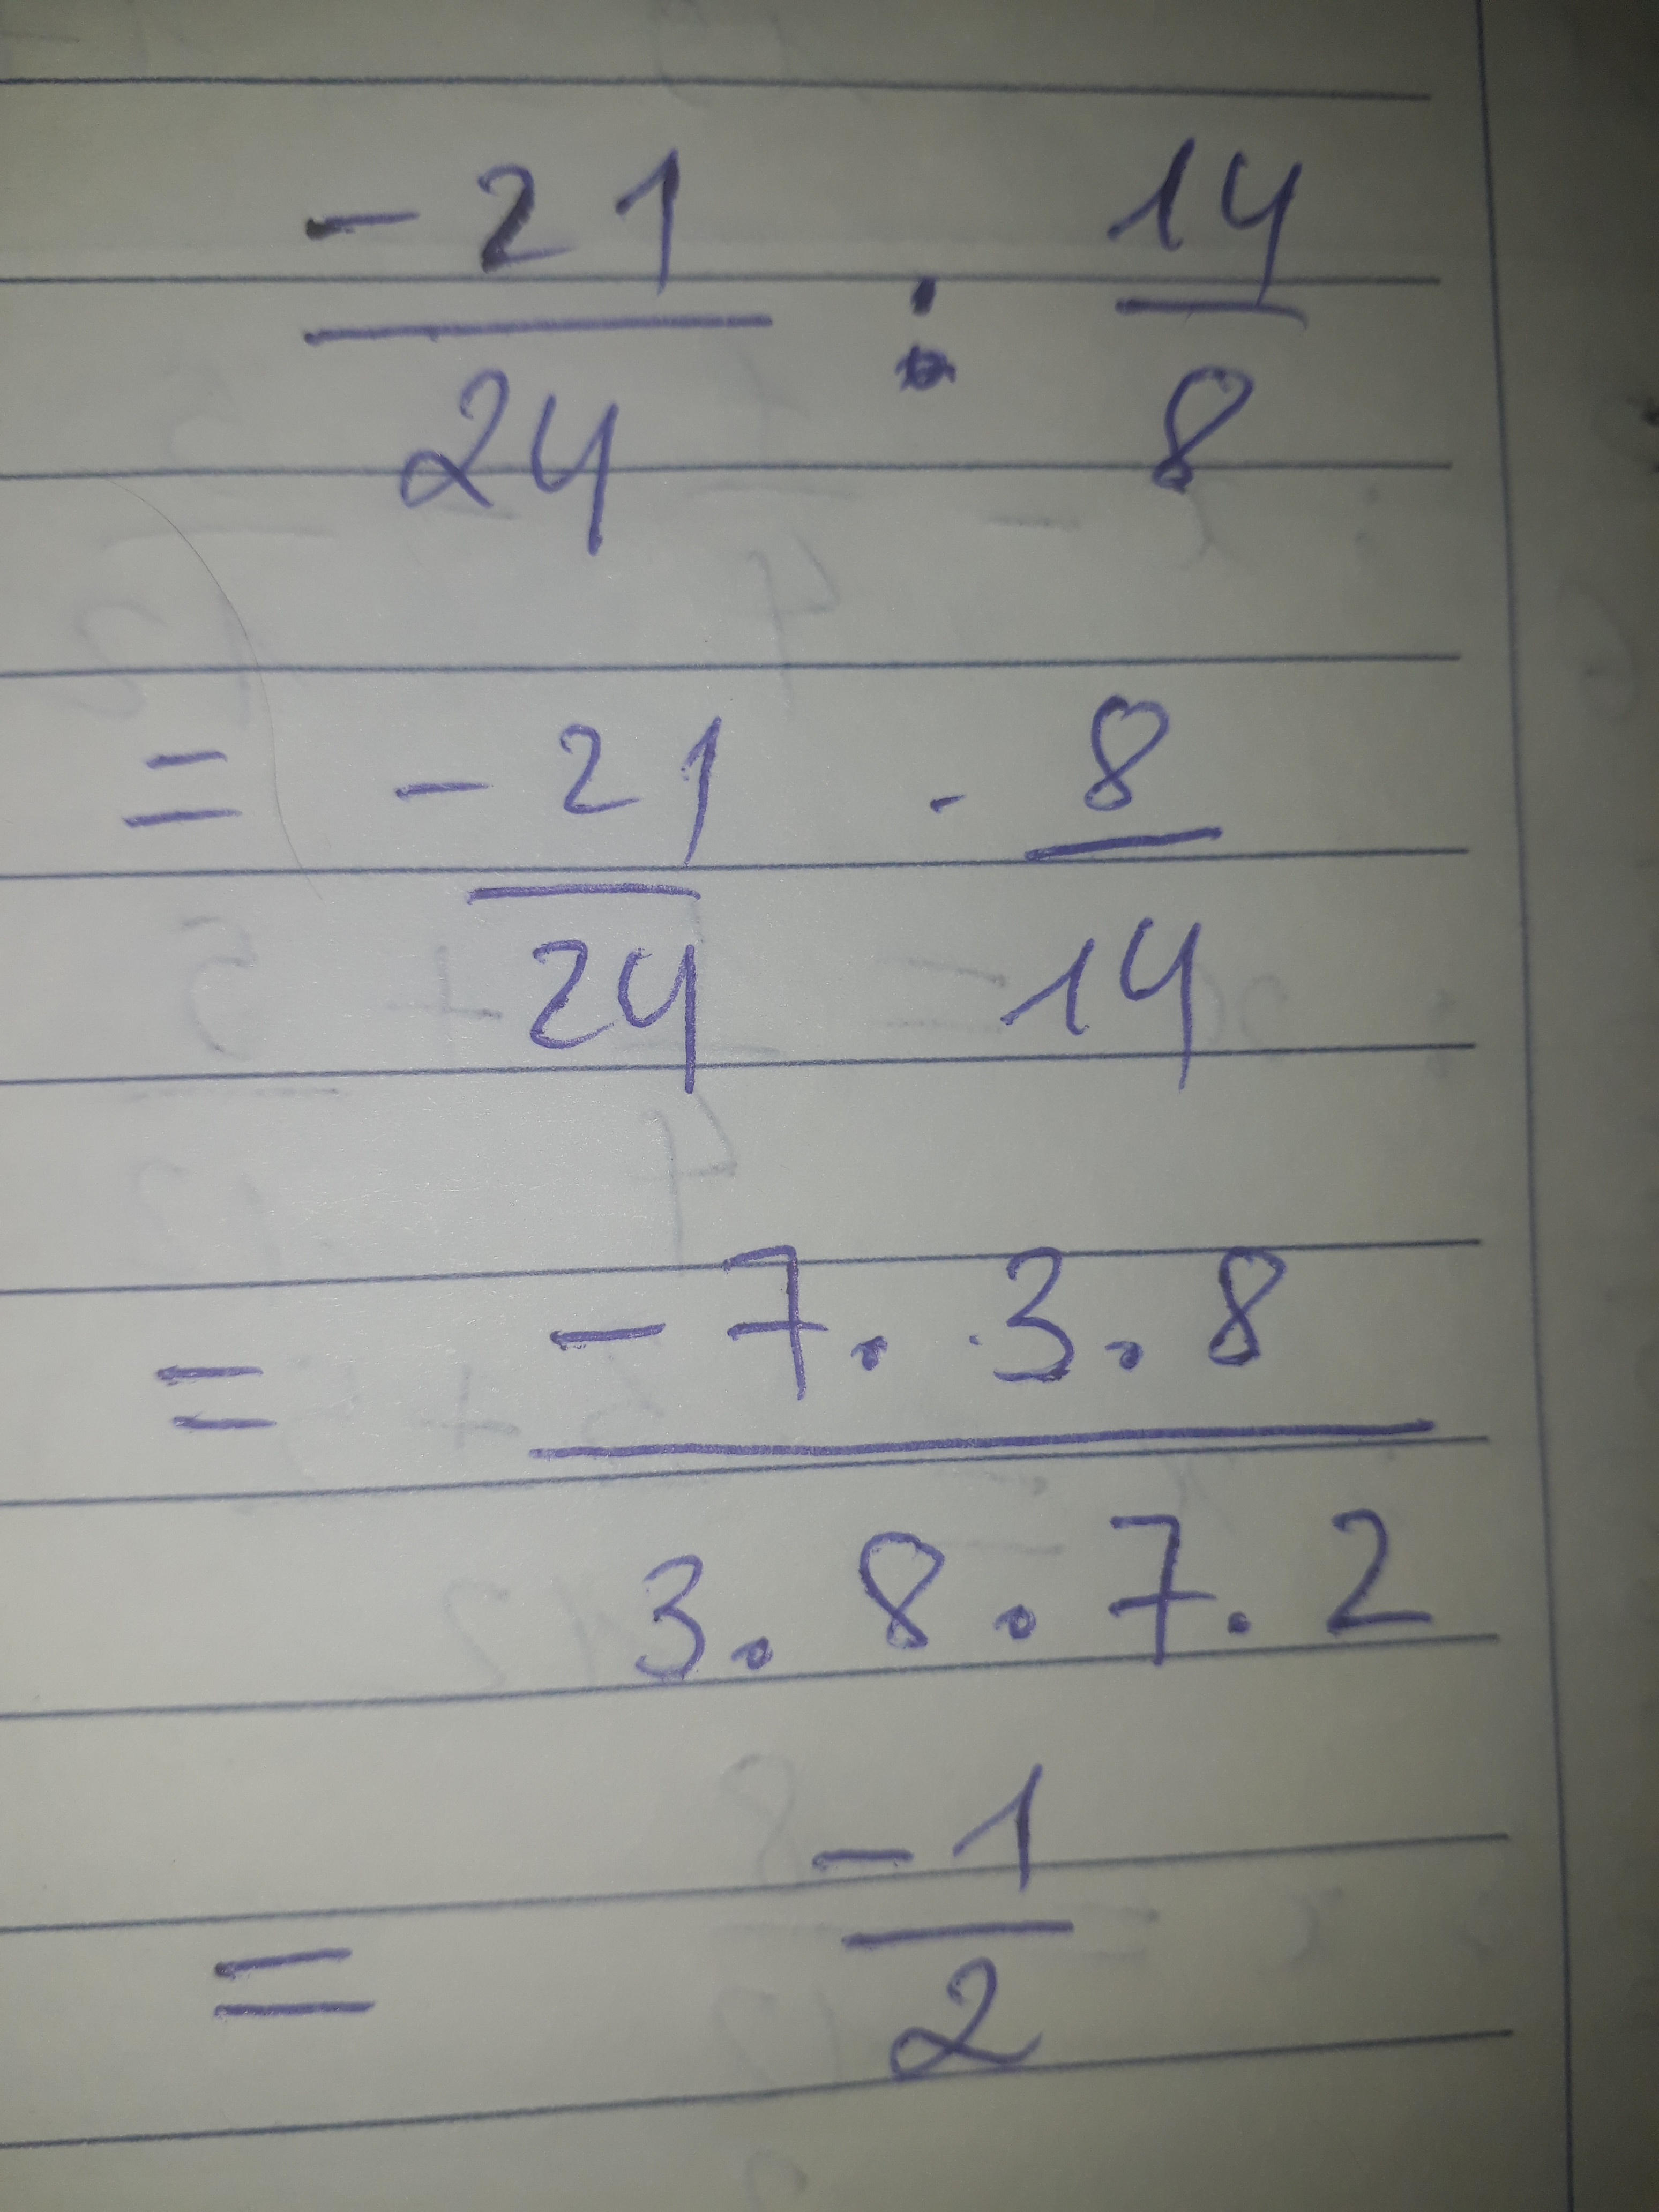 -21/24 : 14/8
= -21/24 . 8/14
= -7.3.8/3.8.7.2
= -1/2